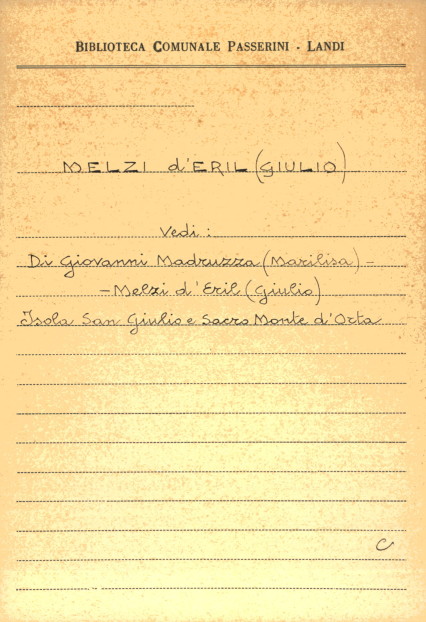 BIBLIOTECA COMUNALE PASSERINI - LANDI
MELZI d'ERIL (GIULIO)
Vedi :
Di Giovanni Madruzza (Marilisa) -
- Melzi d'Eril (Giulio)
Isola San Giulio e Sacro Monte d'Orta
C